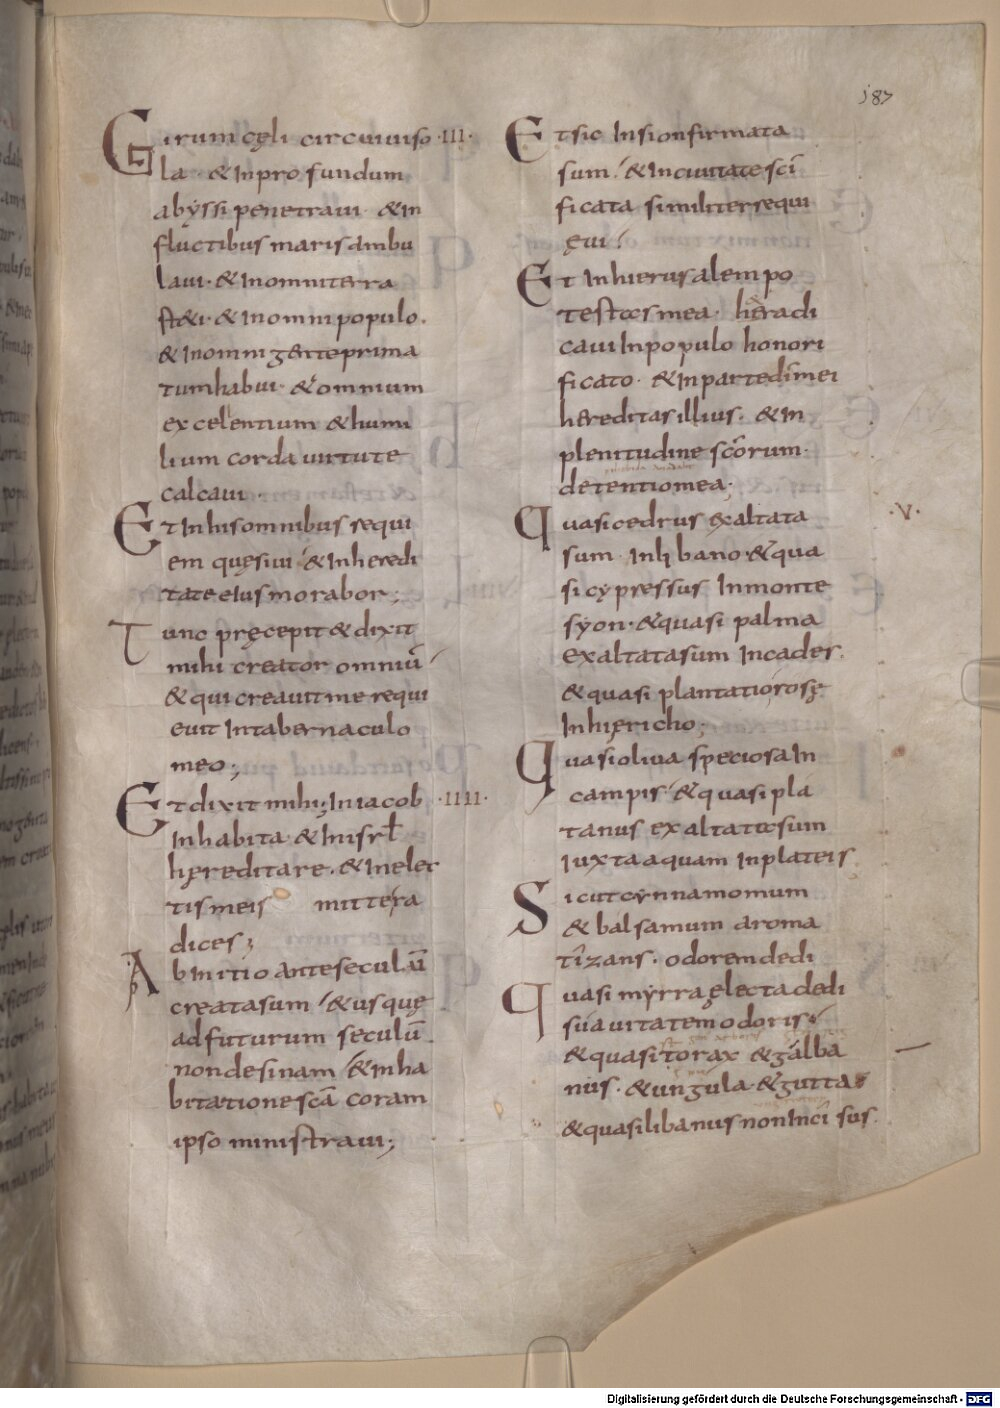 187
Girum cęli circuiui so ·III·
la · & In pro fundum
abyssi penetraui · & In
fluctibus maris ambu
laui · & Inomni terra
st&i · & Inomni populo.
& Inomni gente prima
tum habui · & omnium
excelentium & humi
lium corda uirtute
calcaui ·
Et In his omnibus requi
em quęsiui & In heredi
tate eius morabor;
Tunc pręcepit & dixit
mihi creator omniū
& qui creauit me requi
euit In tabernaculo
meo;
Et dixit mihi; In iacob ·IIII·
Inhabita & In isrł
hęreditare. & In elec
tis meis mitte ra
dices;
Ab initio ante seculū
creata sum & usquę
ad futurum seculū.
non desinam & In ha
bitatione scā coram
ipso ministraui;
Et sic In sion firmata
sum & In ciuitate sci
ficata similiter requi
ęui
Et In hierusalem po
testas mea · & radi
caui In populo honori
ficato · & In parte dī mei
hereditas illius. & In
plenitudine scōrum
detentio mea;
Quasi cedrus exaltata ·V·
sum In libano · & qua
si cypressus In monte
syon · & quasi palma
exaltata sum In cades.
& quasi plantatio rosę
In hięricho;
Quasi oliua speciosa In
campis & quasi pla
tanus exaltata sum
iuxta aquam In plateis
Sicut cynnamomum
& balsamum aroma
tizans. odorem dedi
quasi myrra electa dedi
suauitatem odoris
& quasi torax & galba
nus · & ungula · & gutta
& quasi libanus non Inci sus.
Digitalisierung gefördert durch die Deutsche Forschungsgemeinschaft - DFG